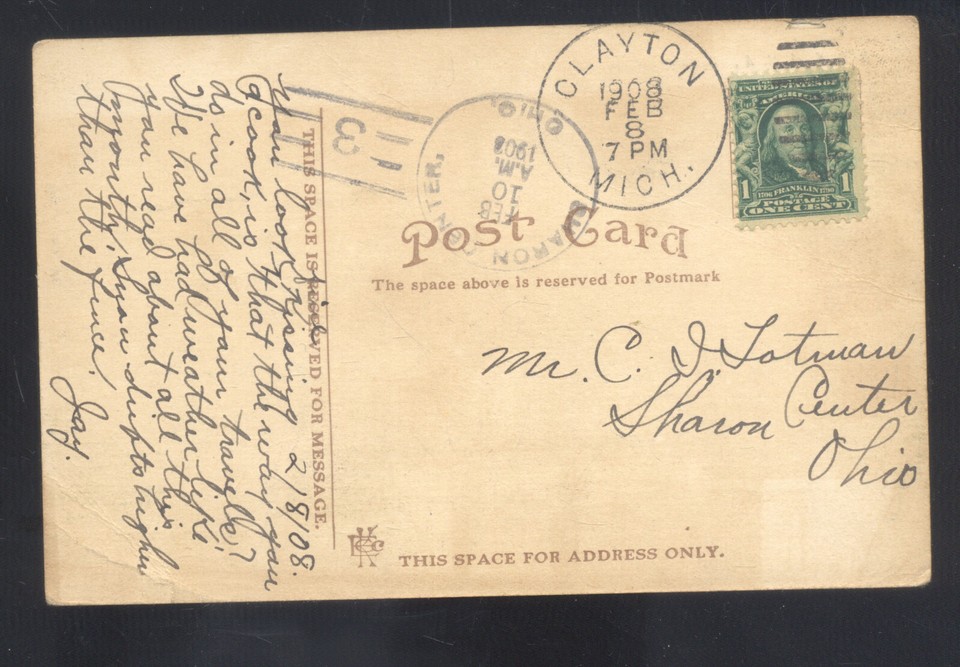 CLAYTON
1908
FEB
8
7 PM
MICH.
SHARON CENTER,
OHIO.
FEB
10
A.M.
1908
3
UNITED STATES OF
AMERICA
1 1
1706 FRANKLIN 1790
POSTAGE
ONE CENT
Post Card
The space above is reserved for Postmark
Mr. C. I. Totman
Sharon Center
Ohio
THIS SPACE FOR ADDRESS ONLY.
THIS SPACE IS RESERVED FOR MESSAGE.
You look fine kissing 2/8/08.
a cook, is that the way you
do in all of your travels?
We have had weather like
you read about all this
month; Snow drifts higher
than the fence!
Jay.